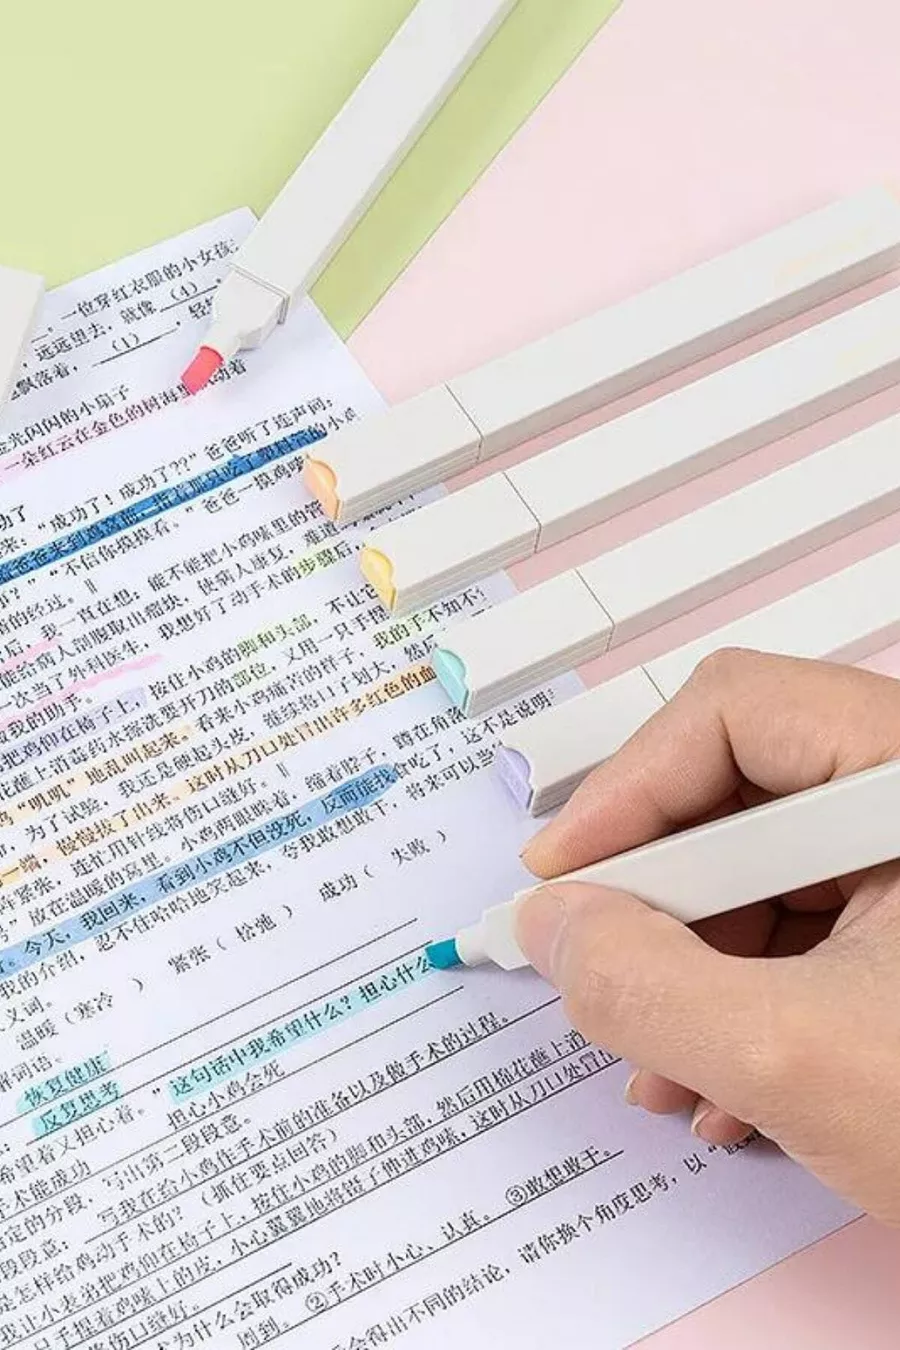 ，一位穿红衣服的小女孩
，远远望去，就像 （1）
飘落着，（1），轻
金光闪闪的小扇子
一朵红云在金色的树海里 动着
功了
来：“成功了！成功了？？”爸爸听了连声问：
爸爸来到鸡窝前，指着那只吃了塑料管的小鸡
？”“不信你摸摸看。”爸爸一摸鸡嗉
的经过。‖
后，我一直在想：能不能把小鸡嗉里的管
能给病人剖腹取出瘤块，使病人康复，难道
一次当了外科医生，我想好了动手术的步骤后，
我的助手。
把鸡仰在椅子上，按住小鸡的脚和头部，不让它
花蘸上消毒药水擦洗要开刀的部位，又用一只手捏
鸡“叽叽”地乱叫起来。看来小鸡痛苦的样子，我的手不知不
，为了试验，我还是硬起头皮，继续将口子划大，然后
一端，慢慢拔了出来。这时从刀口处冒出许多红色的血
紧张，连忙用针线将伤口缝好。‖
放在温暖的窝里。小鸡两眼眯着，缩着脖子，蹲在角落
。今天，我回来，看到小鸡不但没死，反而能找食吃了，这不是说明
我的介绍，忍不住哈哈地笑起来，夸我敢想敢干，将来可以当
义词。
温暖（寒冷 ） 紧张（ 松弛 ） 成功（ 失败 ）
解词语。
恢复健康
反复思考
希望着又担心着。”这句话中我希望什么？担心什么
手术能成功 担心小鸡会死
定的分段，写出第二段段意。
段段意：写我在给小鸡作手术前的准备以及做手术的过程。
是怎样给鸡动手术的？（抓住要点回答）
我让小表弟把鸡仰在椅子上，按住小鸡的脚和头部，然后用棉花蘸上消
只手捏着鸡嗉上的皮，小心翼翼地将镊子伸进鸡嗉，这时从刀口处冒出
将伤口缝好。
术为什么会取得成功？
周到。②手术时小心、认真。③敢想敢干。
会得出不同的结论，请你换个角度思考，以“